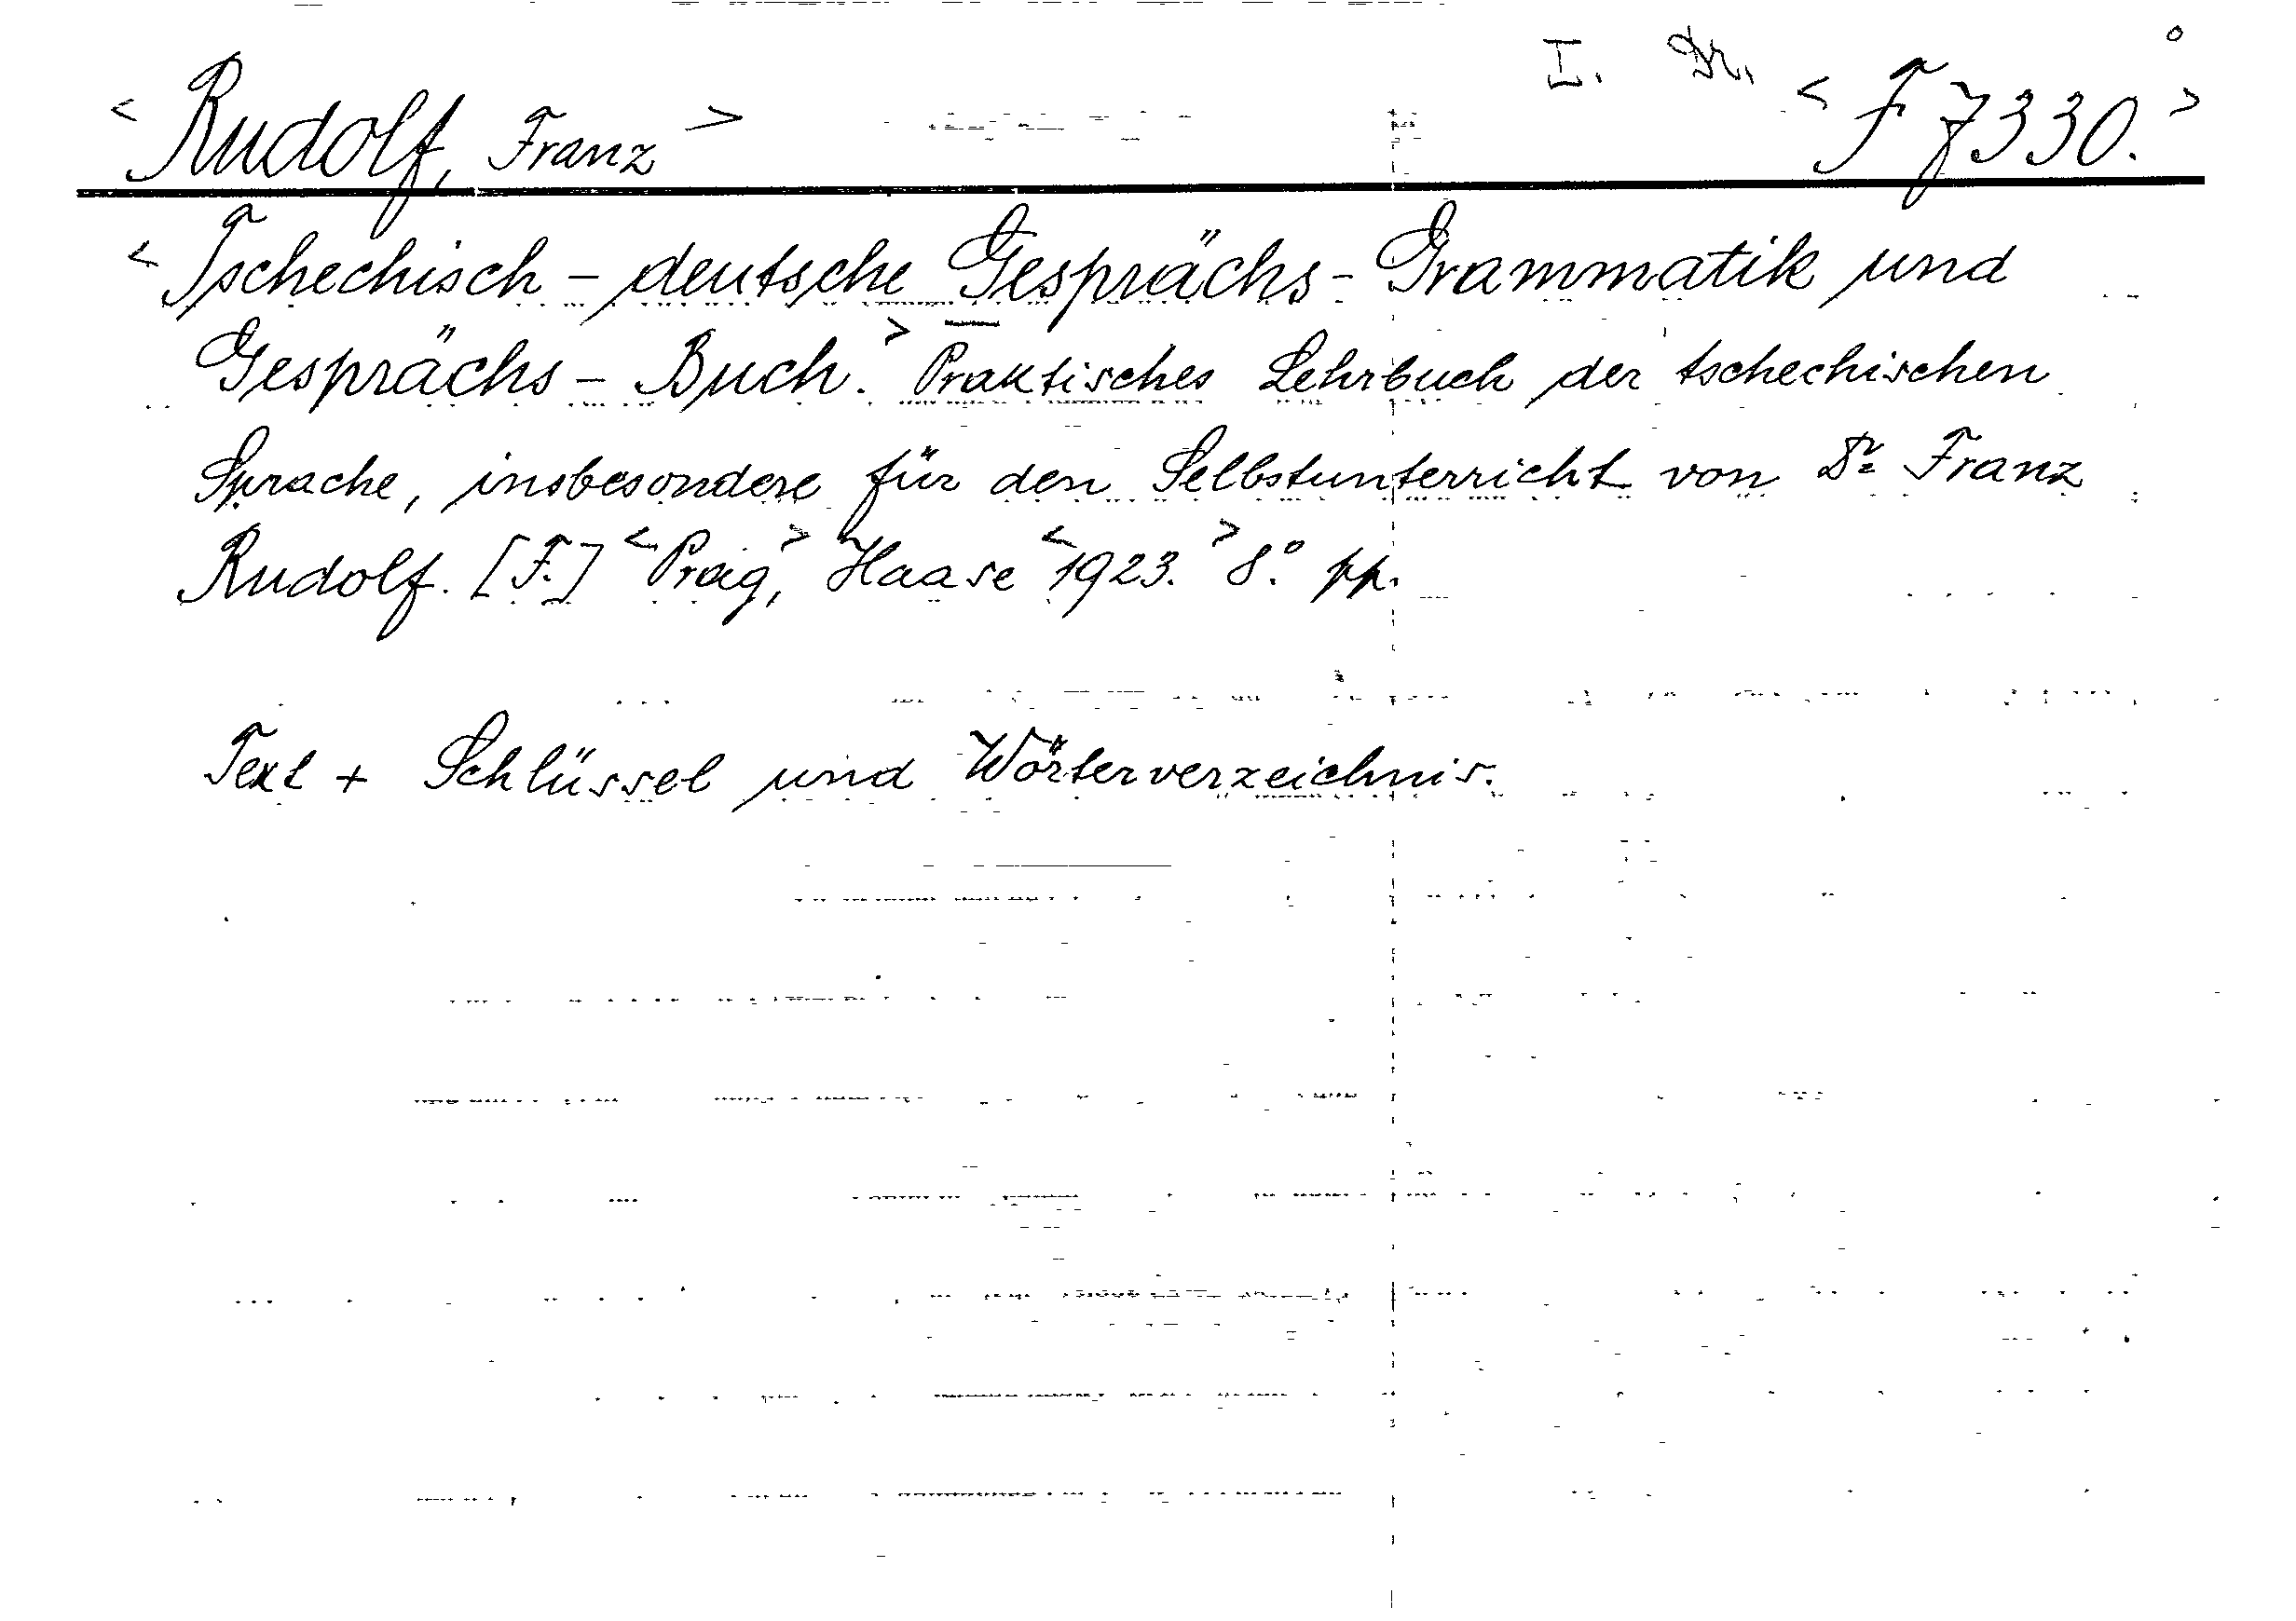 I. Dr.
<Rudolf, Franz> <F 7330.>
<Tschechisch-deutsche Gesprächs-Grammatik und
Gesprächs-Buch.> Praktisches Lehrbuch der tschechischen
Sprache, insbesondere für den Selbstunterricht von Dr. Franz
Rudolf. [F.] <Prag,> Haase <1923.> 8.° pp.
Text + Schlüssel und Wörterverzeichnis.